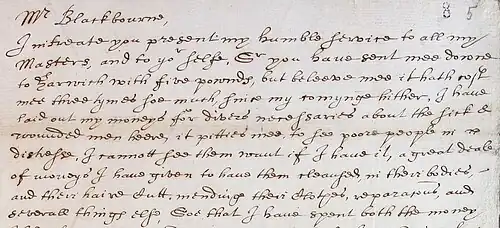 85
Mr Blackbourne,
I intreate you present my humble service to all my
Masters, and to yor selfe, Sr you have sent mee downe
to Harwich with five pownds, but beleeve mee it hath cost
mee three tymes soe much, since my comynge hither, I have
laid out my moneys for divers necessaries about the sick &
wounded men heere, it pitties mee, to see poore people in
distresse, I cannott see them want if I have it, a great deale
of moneys I have given to have them cleansed, in their bodies,
and their haire Cutt, mendinge their Clothes, reparations, and
severall things else, Soe that I have spent both the money